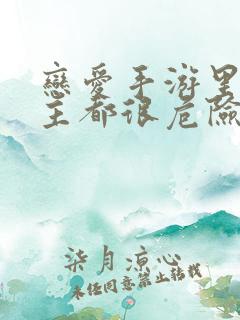 戀愛手游里
主都很危險
柒月涼心
未经同意禁止转载